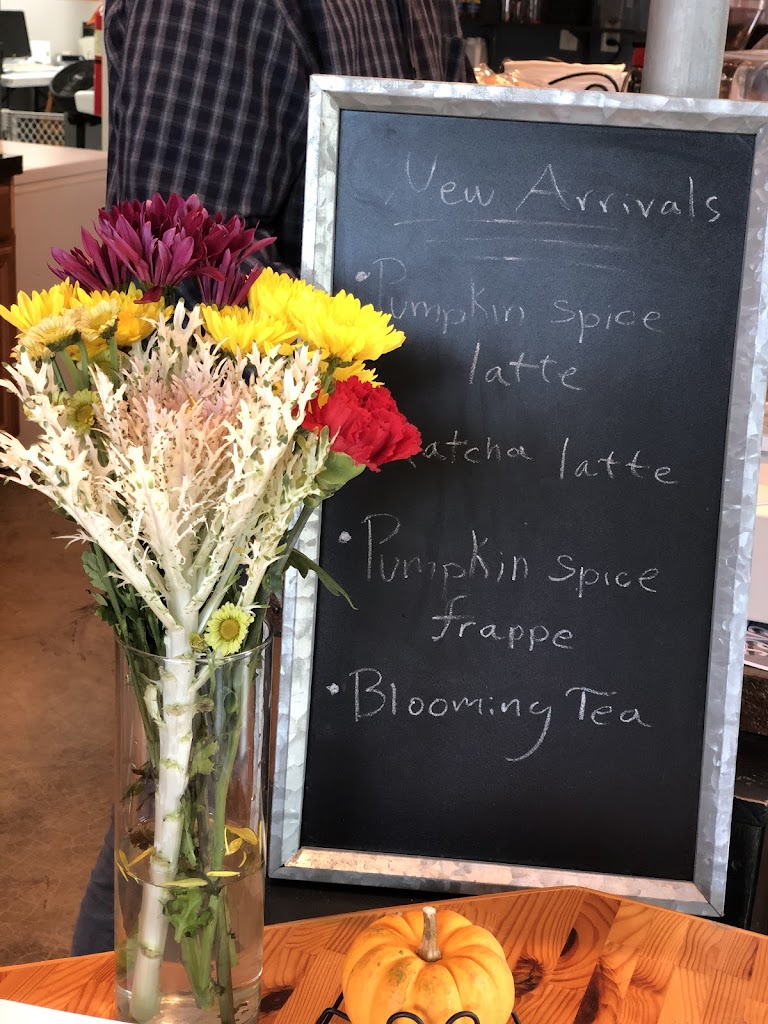 New Arrivals
• Pumpkin spice
latte
atcha latte
• Pumpkin spice
frappe
• Blooming Tea